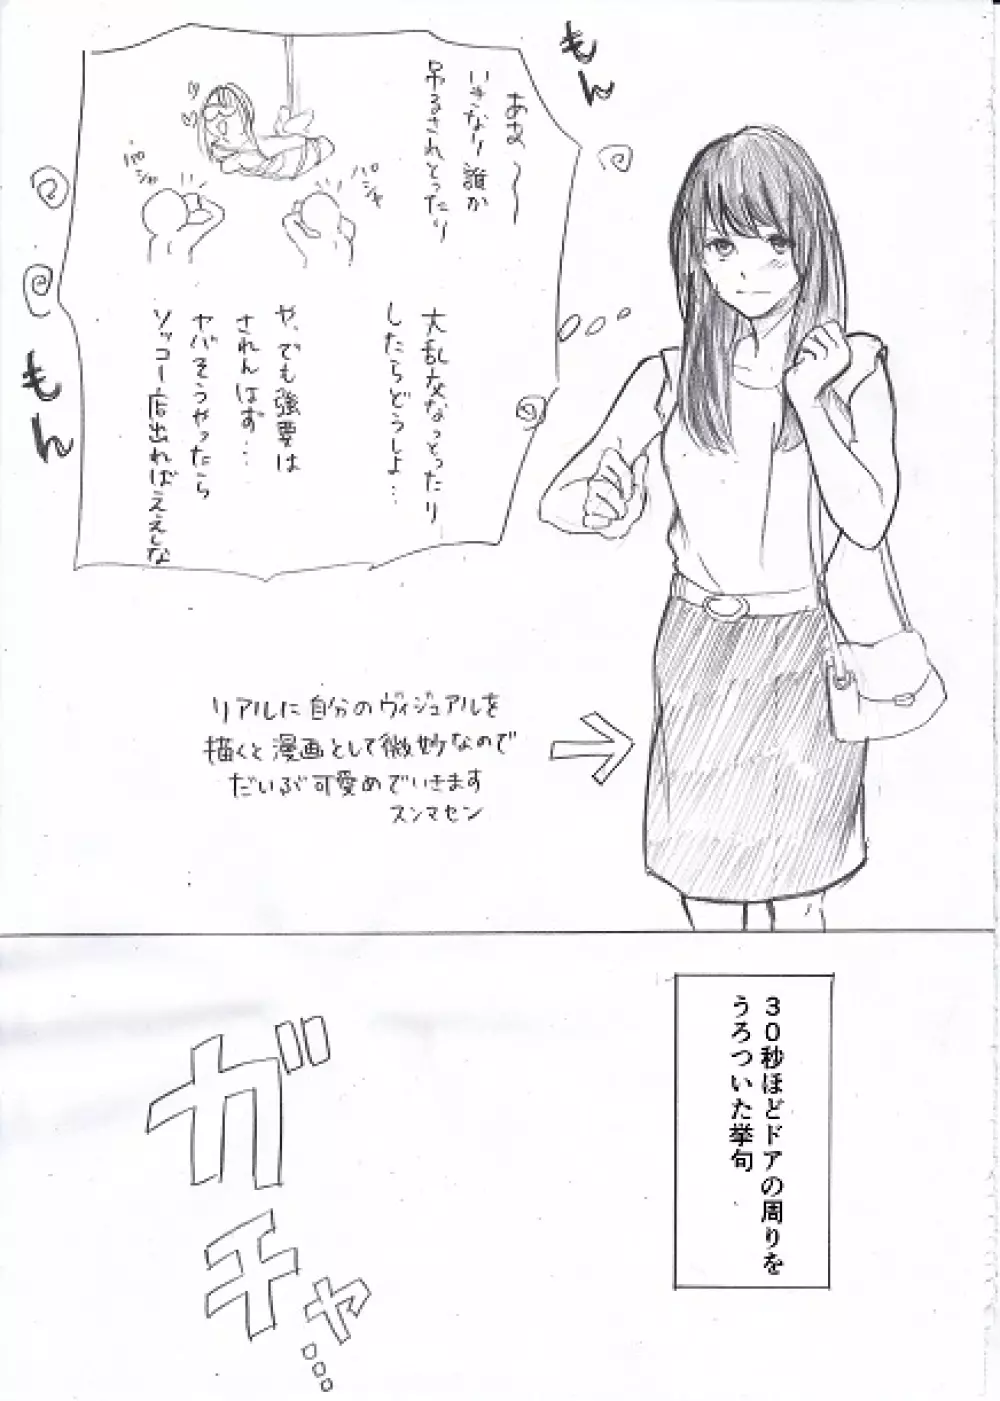 もん
もん
ああ〜〜
いきなり誰か
吊るされとったり
パシャ
パシャ
大乱交なっとったり
したらどうしよ…
や、でも強要は
されんはず…
ヤバそうやったら
ソッコー店出ればええしな
リアルに自分のヴィジュアルを
描くと漫画として微妙なので
だいぶ可愛めでいきます
スンマセン
30秒ほどドアの周りを
うろついた挙句
ガチャ…